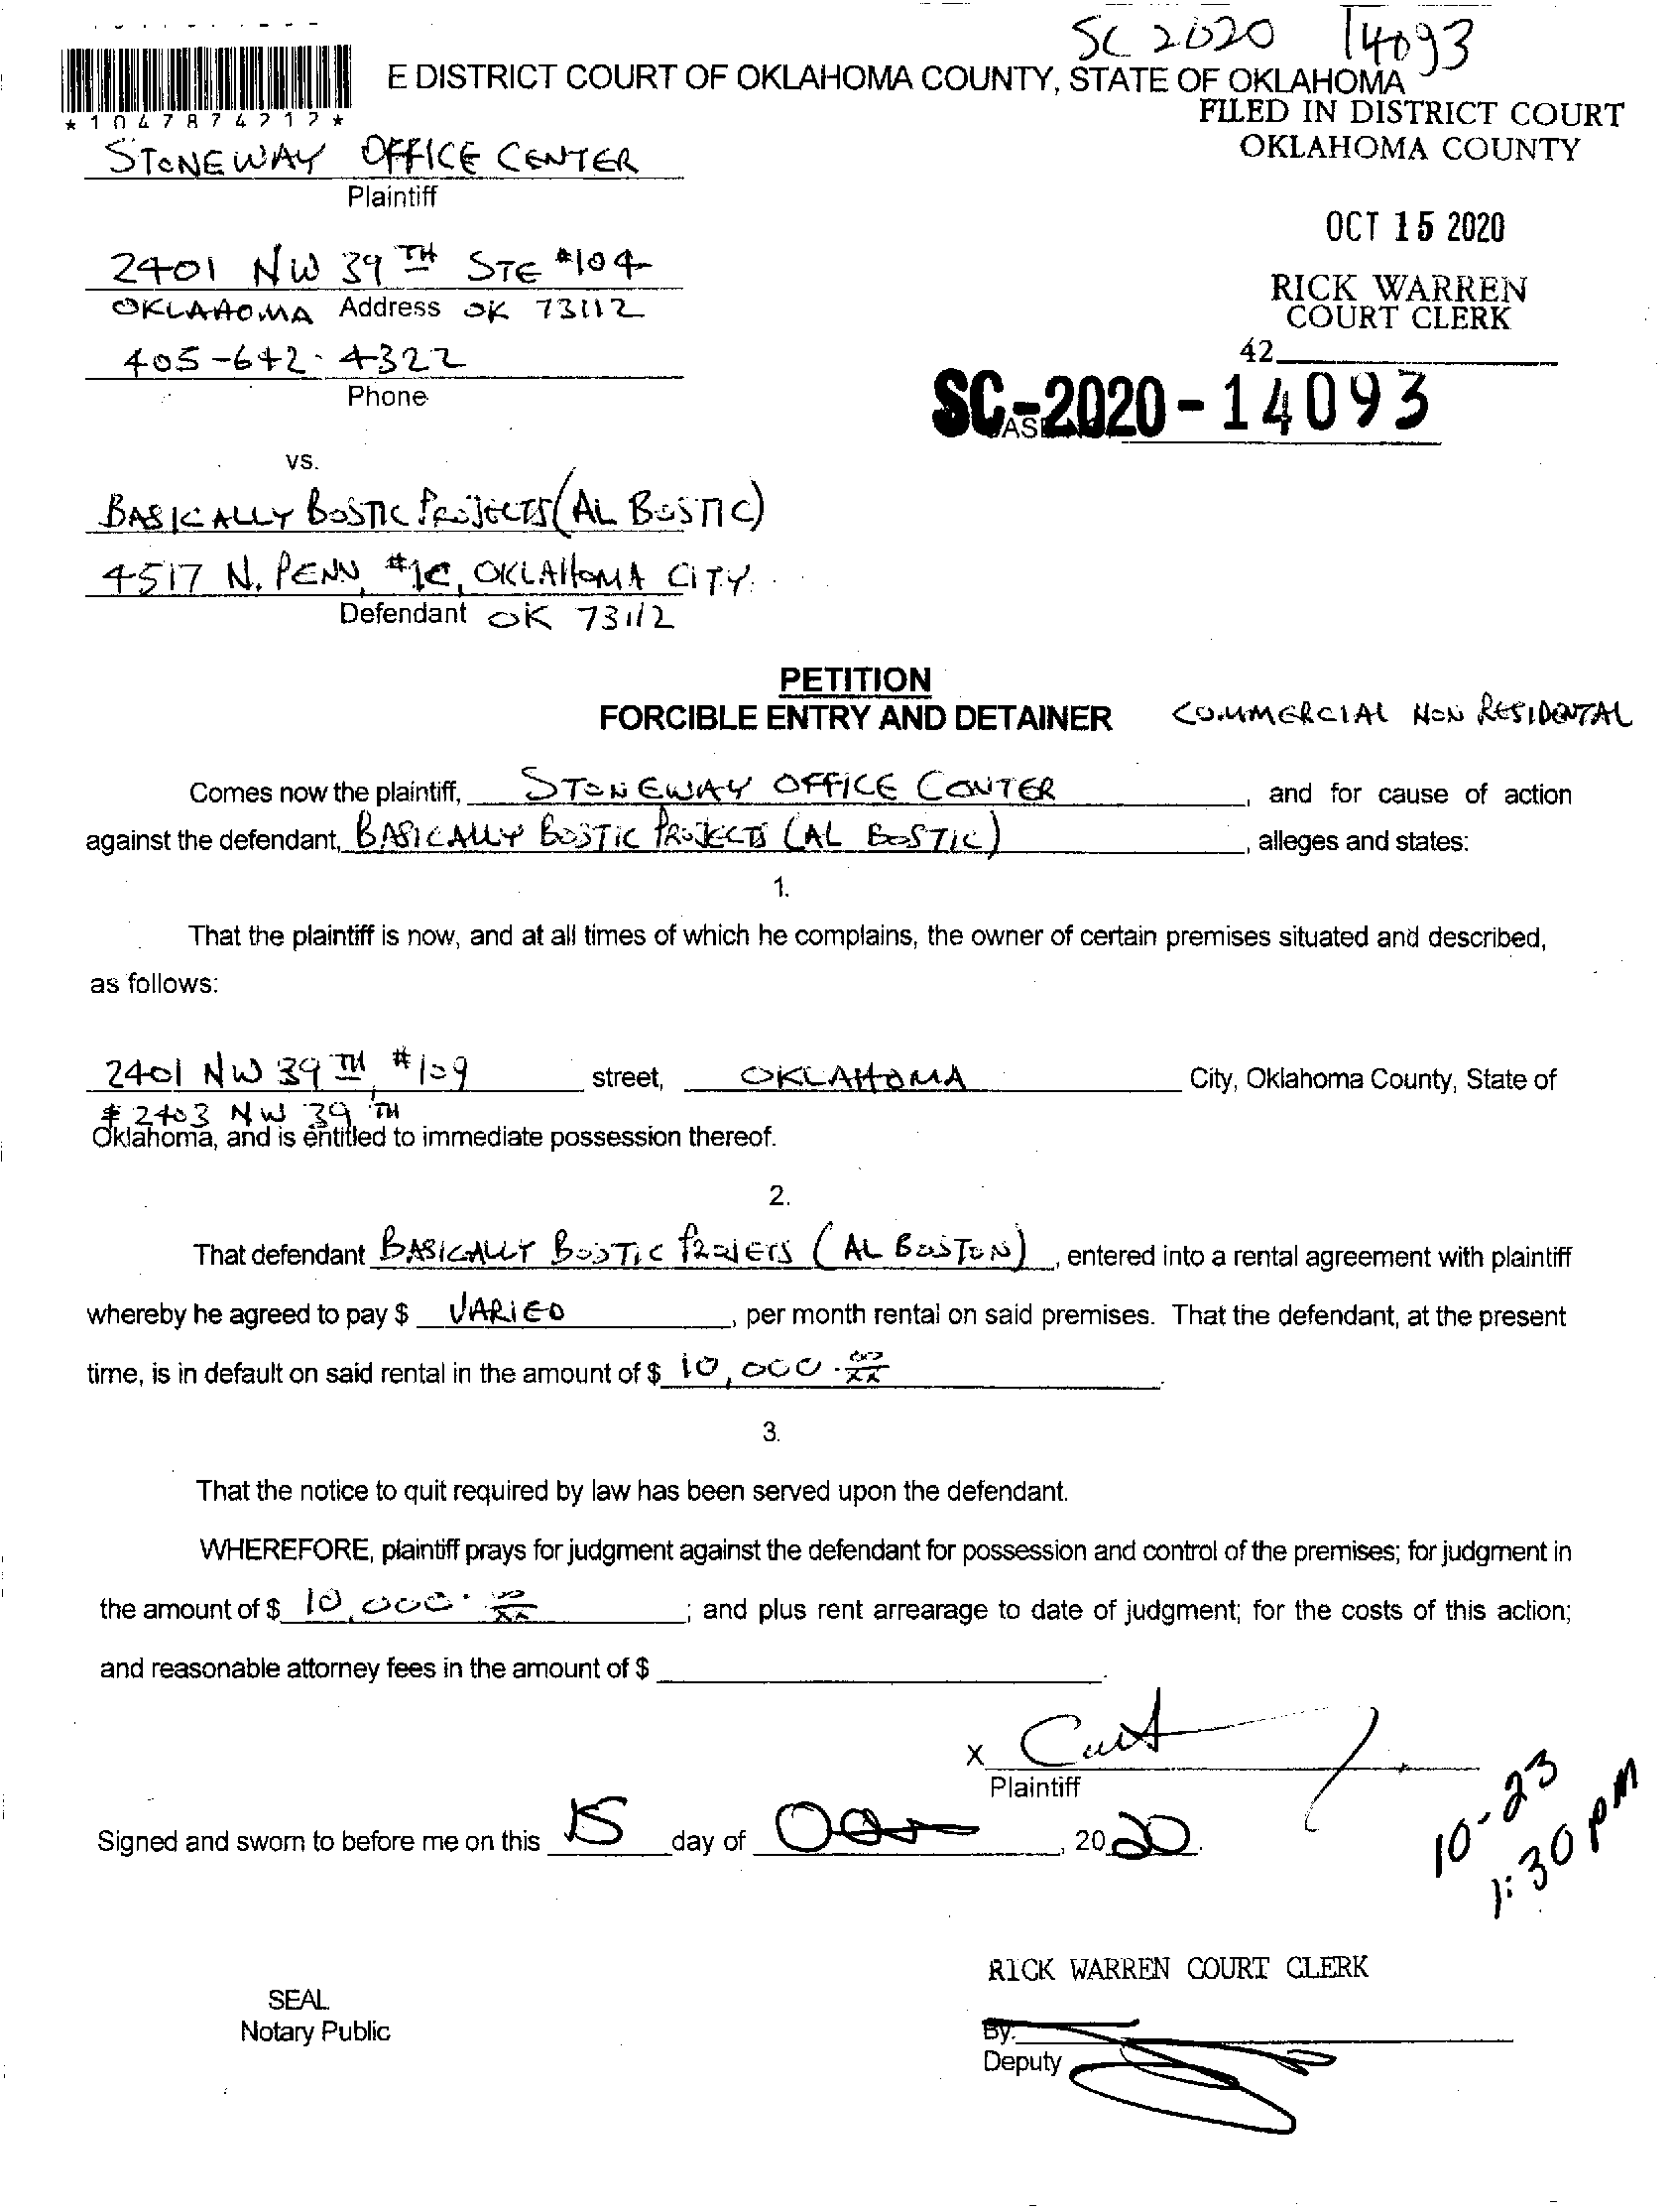 SC 2020 14093
E DISTRICT COURT OF OKLAHOMA COUNTY, STATE OF OKLAHOMA
*1047874212*
FILED IN DISTRICT COURT
OKLAHOMA COUNTY
STONEWAY OFFICE CENTER
Plaintiff
OCT 15 2020
2401 NW 39TH STE #104
OKLAHOMA Address OK 73112
RICK WARREN
COURT CLERK
405-642-4322
42
Phone
SC-2020-14093
vs.
BASICALLY BOSTIC PROJECTS (AL BOSTIC)
4517 N. PENN, #1C, OKLAHOMA CITY
Defendant OK 73112
PETITION
FORCIBLE ENTRY AND DETAINER COMMERCIAL NON RESIDENTAL
Comes now the plaintiff, STONEWAY OFFICE CENTER, and for cause of action
against the defendant, BASICALLY BOSTIC PROJECTS (AL BOSTIC), alleges and states:
1.
That the plaintiff is now, and at all times of which he complains, the owner of certain premises situated and described,
as follows:
2401 NW 39TH, #109 street, OKLAHOMA City, Oklahoma County, State of
& 2403 NW 39TH
Oklahoma, and is entitled to immediate possession thereof.
2.
That defendant BASICALLY BOSTIC PROJECTS (AL BOSTON), entered into a rental agreement with plaintiff
whereby he agreed to pay $ VARIED, per month rental on said premises. That the defendant, at the present
time, is in default on said rental in the amount of $ 10,000.00/xx.
3.
That the notice to quit required by law has been served upon the defendant.
WHEREFORE, plaintiff prays for judgment against the defendant for possession and control of the premises; for judgment in
the amount of $ 10,000.00/xx; and plus rent arrearage to date of judgment; for the costs of this action;
and reasonable attorney fees in the amount of $
X
Plaintiff
10-23
1:30 PM
Signed and sworn to before me on this 15 day of , 2020.
RICK WARREN COURT CLERK
SEAL
Notary Public
By:
Deputy